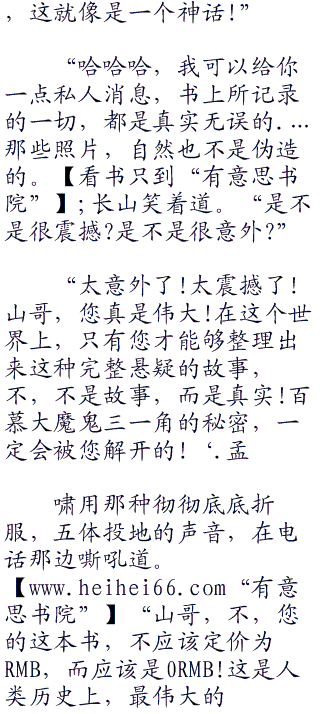 ，这就像是一个神话!”
“哈哈哈，我可以给你
一点私人消息，书上所记录
的一切，都是真实无误的.…
那些照片，自然也不是伪造
的。【看书只到“有意思书
院”】;长山笑着道。“是不
是很震撼?是不是很意外?”
“太意外了!太震撼了!
山哥，您真是伟大!在这个世
界上，只有您才能够整理出
来这种完整悬疑的故事，
不，不是故事，而是真实!百
慕大魔鬼三一角的秘密，一
定会被您解开的！‘.孟
啸用那种彻彻底底折
服，五体投地的声音，在电
话那边嘶吼道。
【www.heihei66.com“有意
思书院”】“山哥，不，您
的这本书，不应该定价为
RMB，而应该是0RMB!这是人
类历史上，最伟大的